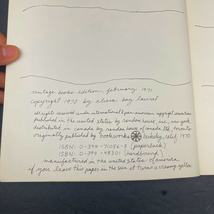 vintage books edition, february, 1971
copyright 1970 by alicia bay laurel
all rights reserved under international & pan-american copyright conventions
published in the united states by random house, inc., new york
distributed in canada by random house of canada ltd., toronto
originally published by bookworks berkeley, calif, 1970
ISBN: 0-394-71056-8 (paperback)
ISBN: 0-394-46301- (hardbound)
manufactured in the united states of america
if you leave this paper in the sun it turns a creamy yellow